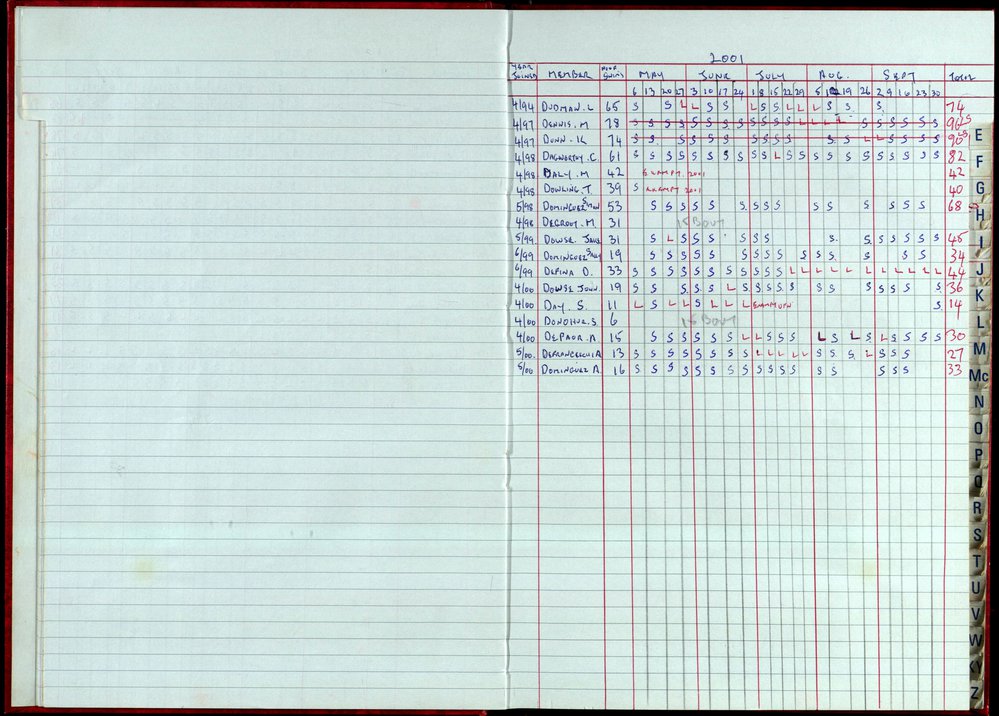 2001
YEAR JOINED MEMBER SWIMS MAY JUNE JULY AUG. SEPT TOTAL
6 13 20 27 3 10 17 24 1 8 15 22 29 5 12 19 26 2 9 16 23 30
4/94 DUDMAN. L 65 S S L L S S L S S L L L S S S 74
4/97 DENNIS. M 78 S S S S S S S S S S S S L L L L S S S S S 96
4/97 DUNN. K 74 S S S S S S S S S S S S L L S S S S 90
4/98 DAGWORTHY. C. 61 S S S S S S S S S S L S S S S S S S S S S S 82
4/98 DALY. M 42 EXEMPT 2001 42
4/98 DOWLING. T. 39 S EXEMPT 2001 40
5/98 DOMINGUEZ 53 S S S S S S S S S S S S S S S 68
4/98 DEGROOT. M. 31 KBOUT
5/99 DOWSE. JANE 31 S L S S S S S S S S S S S S 45
6/99 DOMINGUEZ SALLY 19 S S S S S S S S S S S S S S 34
6/99 DEPINA D. 33 S S S S S S S S S S S S L L L L L L L L L L 44
4/00 DOWSE JOHN. 19 S S S S S L S S S S S S S S S S S S 36
4/00 DAY. S. 11 L S L L S L L L S 14
4/00 DONOHUE. S 6 KBOUT
4/00 DEPAOR. A 15 S S S S S S L L S S S L S L S L S S S S 30
5/00. DEFRANCESCHI A 13 S S S S S S S S L L L L L S S S L S S S 27
5/00 DOMINGUEZ A. 16 S S S S S S S S S S S S S S S S S 33
E
F
G
H
I
J
K
L
M
Mc
N
O
P
Q
R
S
T
U
V
W
XY
Z